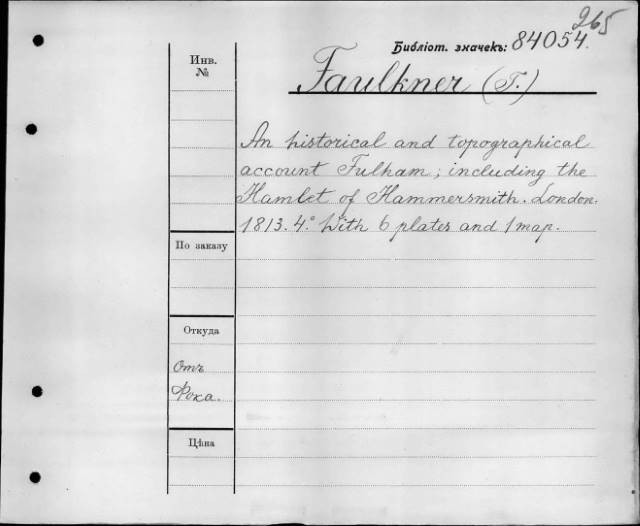 265
Библіот. значекъ: 84054.
Инв.
№
Faulkner (T.)
An historical and topographical
account Fulham; including the
Hamlet of Hammersmith. London.
1813. 4° With 6 plates and 1 map.
По заказу
Откуда
Отъ
Фока.
Цѣна